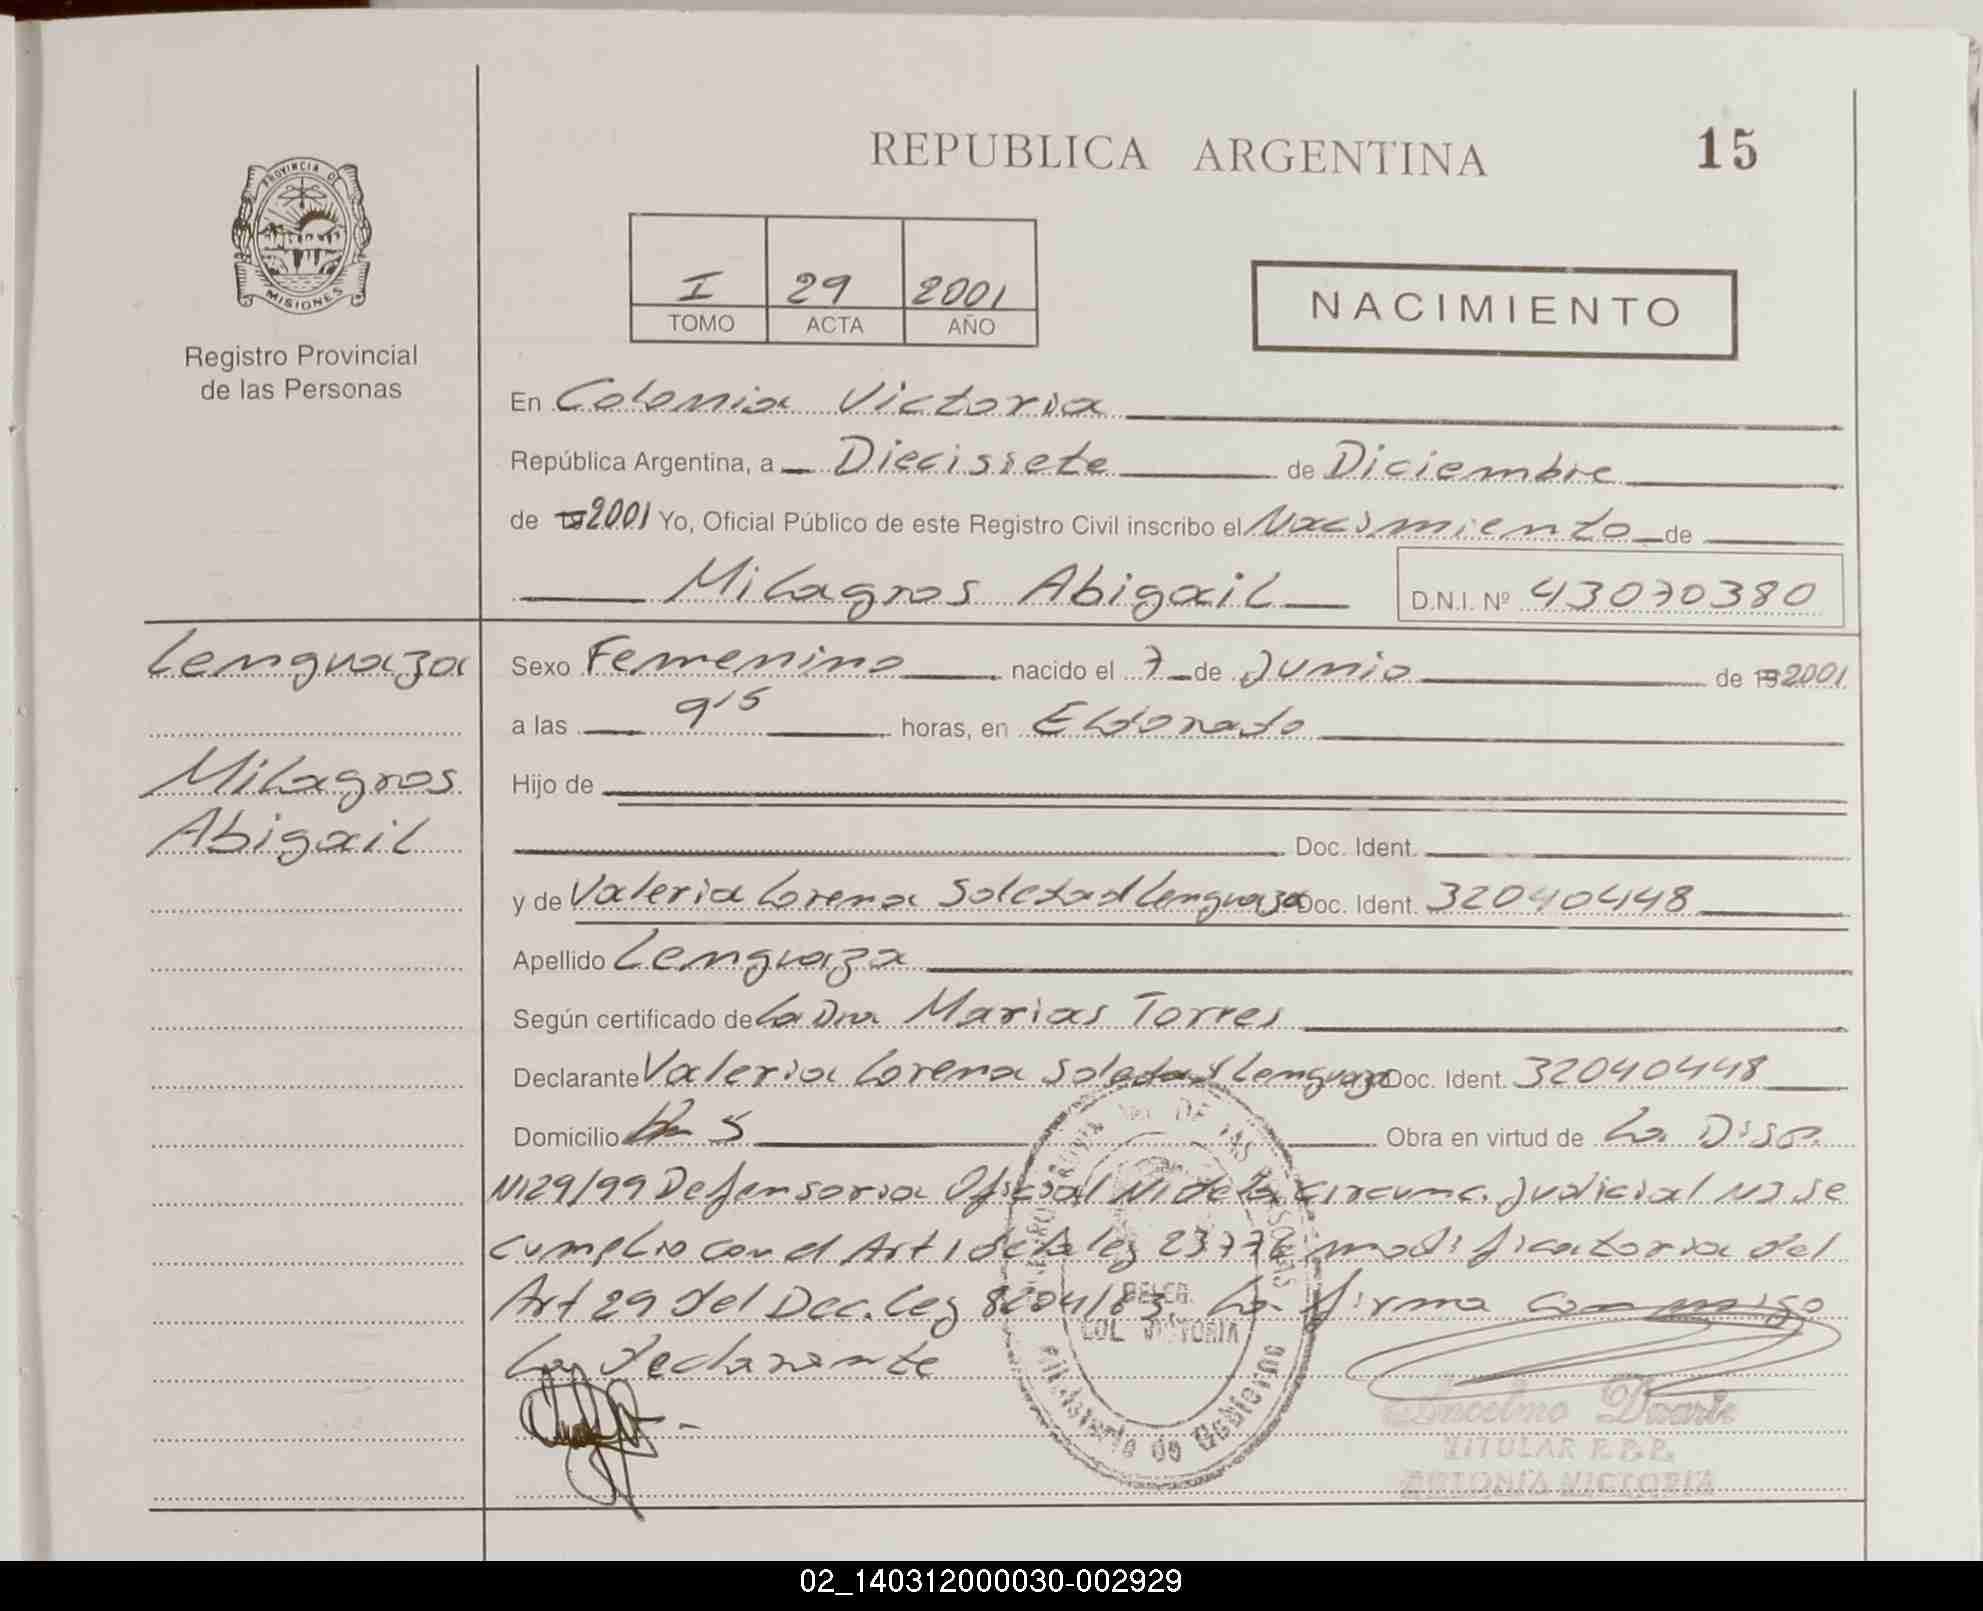 REPUBLICA ARGENTINA 15
PROVINCIA DE
MISIONES
Registro Provincial
de las Personas
I 29 2001
TOMO ACTA AÑO
NACIMIENTO
En Colonia Victoria
República Argentina, a Diecissete de Diciembre
de 19 2001 Yo, Oficial Público de este Registro Civil inscribo el Nacimiento de
Milagros Abigail D.N.I. Nº 43070380
Lenguaza
Milagros
Abigail
Sexo Femenino nacido el 7 de Junio de 19 2001
a las 9'15 horas, en Eldorado
Hijo de
Doc. Ident.
y de Valeria Lorena Soledad Lenguaza Doc. Ident. 32040448
Apellido Lenguaza
Según certificado de La Dra Marias Torres
Declarante Valeria Lorena Soledad Lenguaza Doc. Ident. 32040448
Domicilio Km 5 Obra en virtud de La Disp.
N129/99 Defensoria Oficial N1 de la Circunc. Judicial N3 se
cumplio con el Art 1 de la ley 23776 modificatoria del
Art 29 del Dec. Ley 8204/63. La firma conmigo
La declarante
DELEG.
COL VICTORIA
Ministerio de Gobierno
Anselmo Duarte
TITULAR R.P.P.
COLONIA VICTORIA
02_140312000030-002929